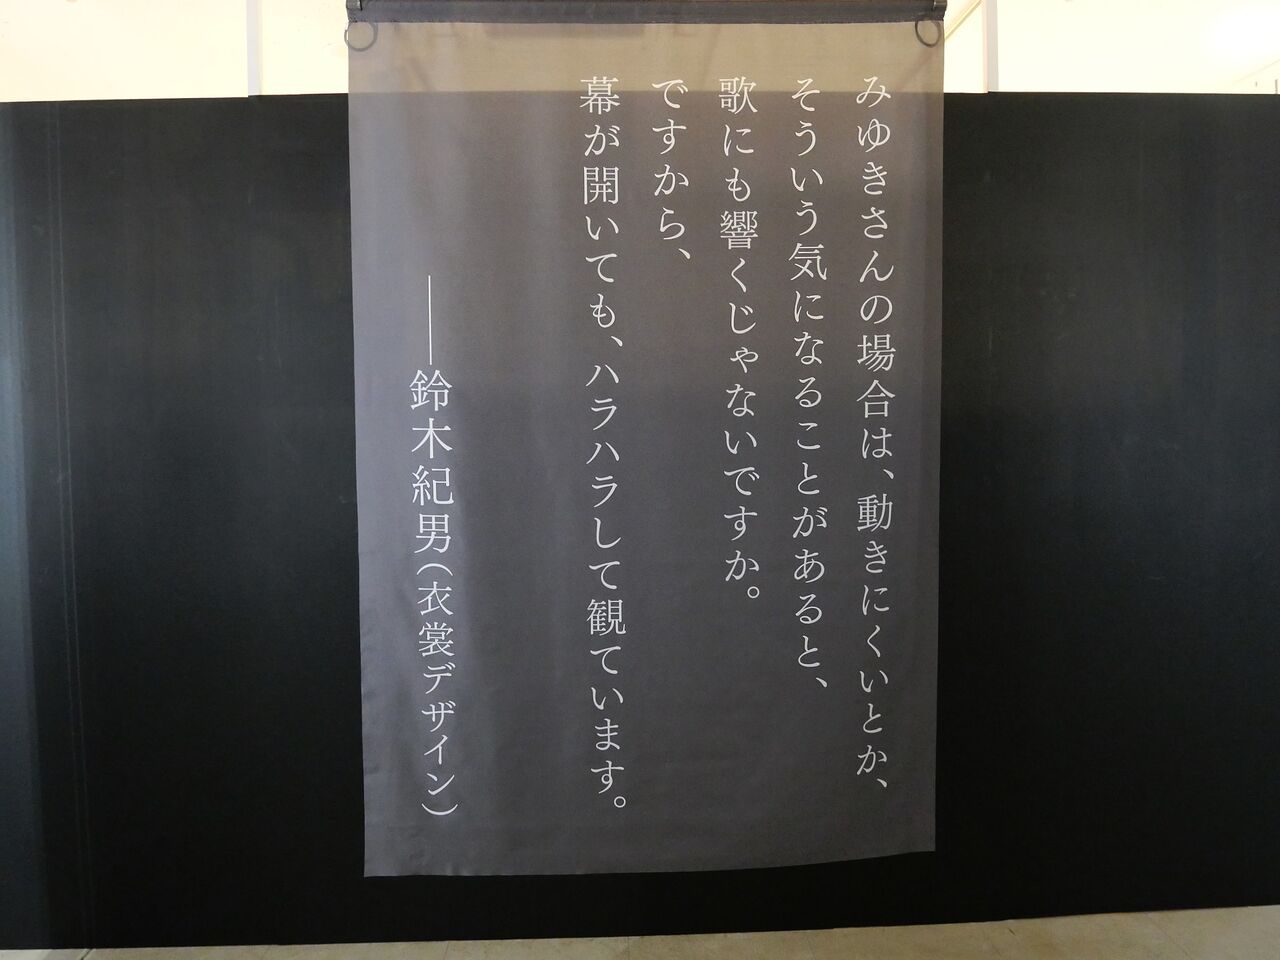 みゆきさんの場合は、動きにくいとか、
そういう気になることがあると、
歌にも響くじゃないですか。
ですから、
幕が開いても、ハラハラして観ています。
――鈴木紀男（衣裳デザイン）